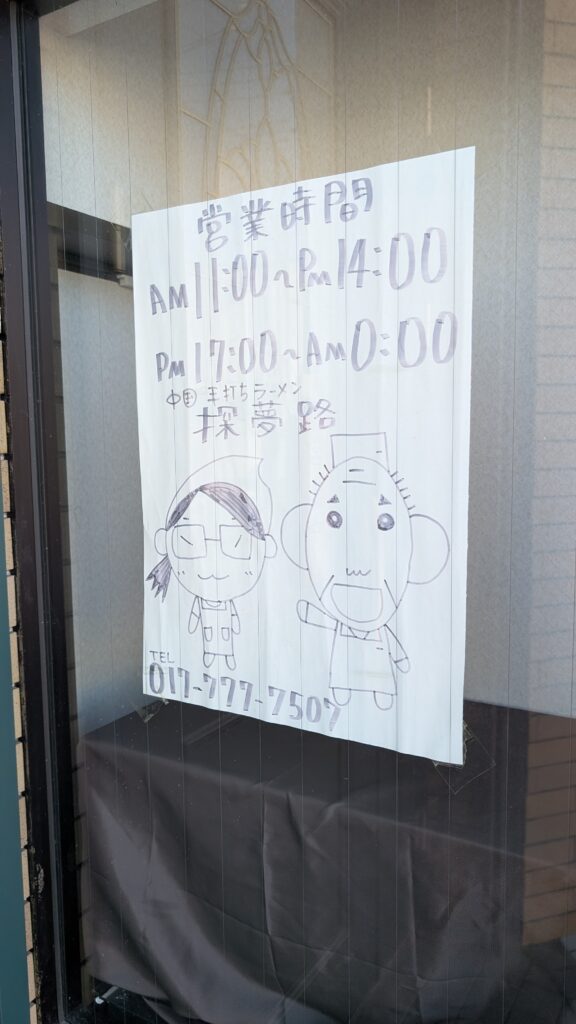 営業時間
AM11:00~PM14:00
PM17:00~AM0:00
中国 手打ちラーメン
探夢路
TEL
017-777-7507